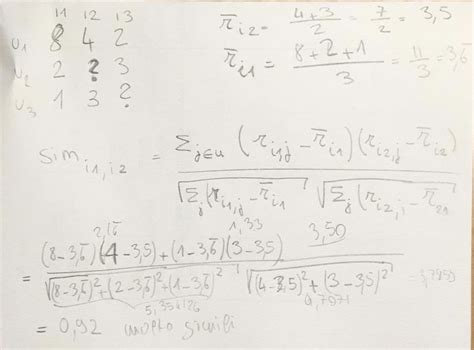 11 12 13
u1 8 4 2
u2 2 ? 3
u3 1 3 ?
r̄i2 = (4+3)/2 = 7/2 = 3,5
r̄i1 = (8+2+1)/3 = 11/3 = 3,6
sim i1,i2 = Σj∈u (ri1,j − r̄i1)(ri2,j − r̄i2) / √Σj(ri1,j − r̄i1) √Σj(ri2,j − r̄
2,16 1,33 3,50
= (8−3,6)(4−3,5)+(1−3,6)(3−3,5) / √(8−3,6)²+(2−3,6)²+(1−3,6)² √(4−3,5)²+(3−3,5)² =
0,7071
= 0,92 molto simili